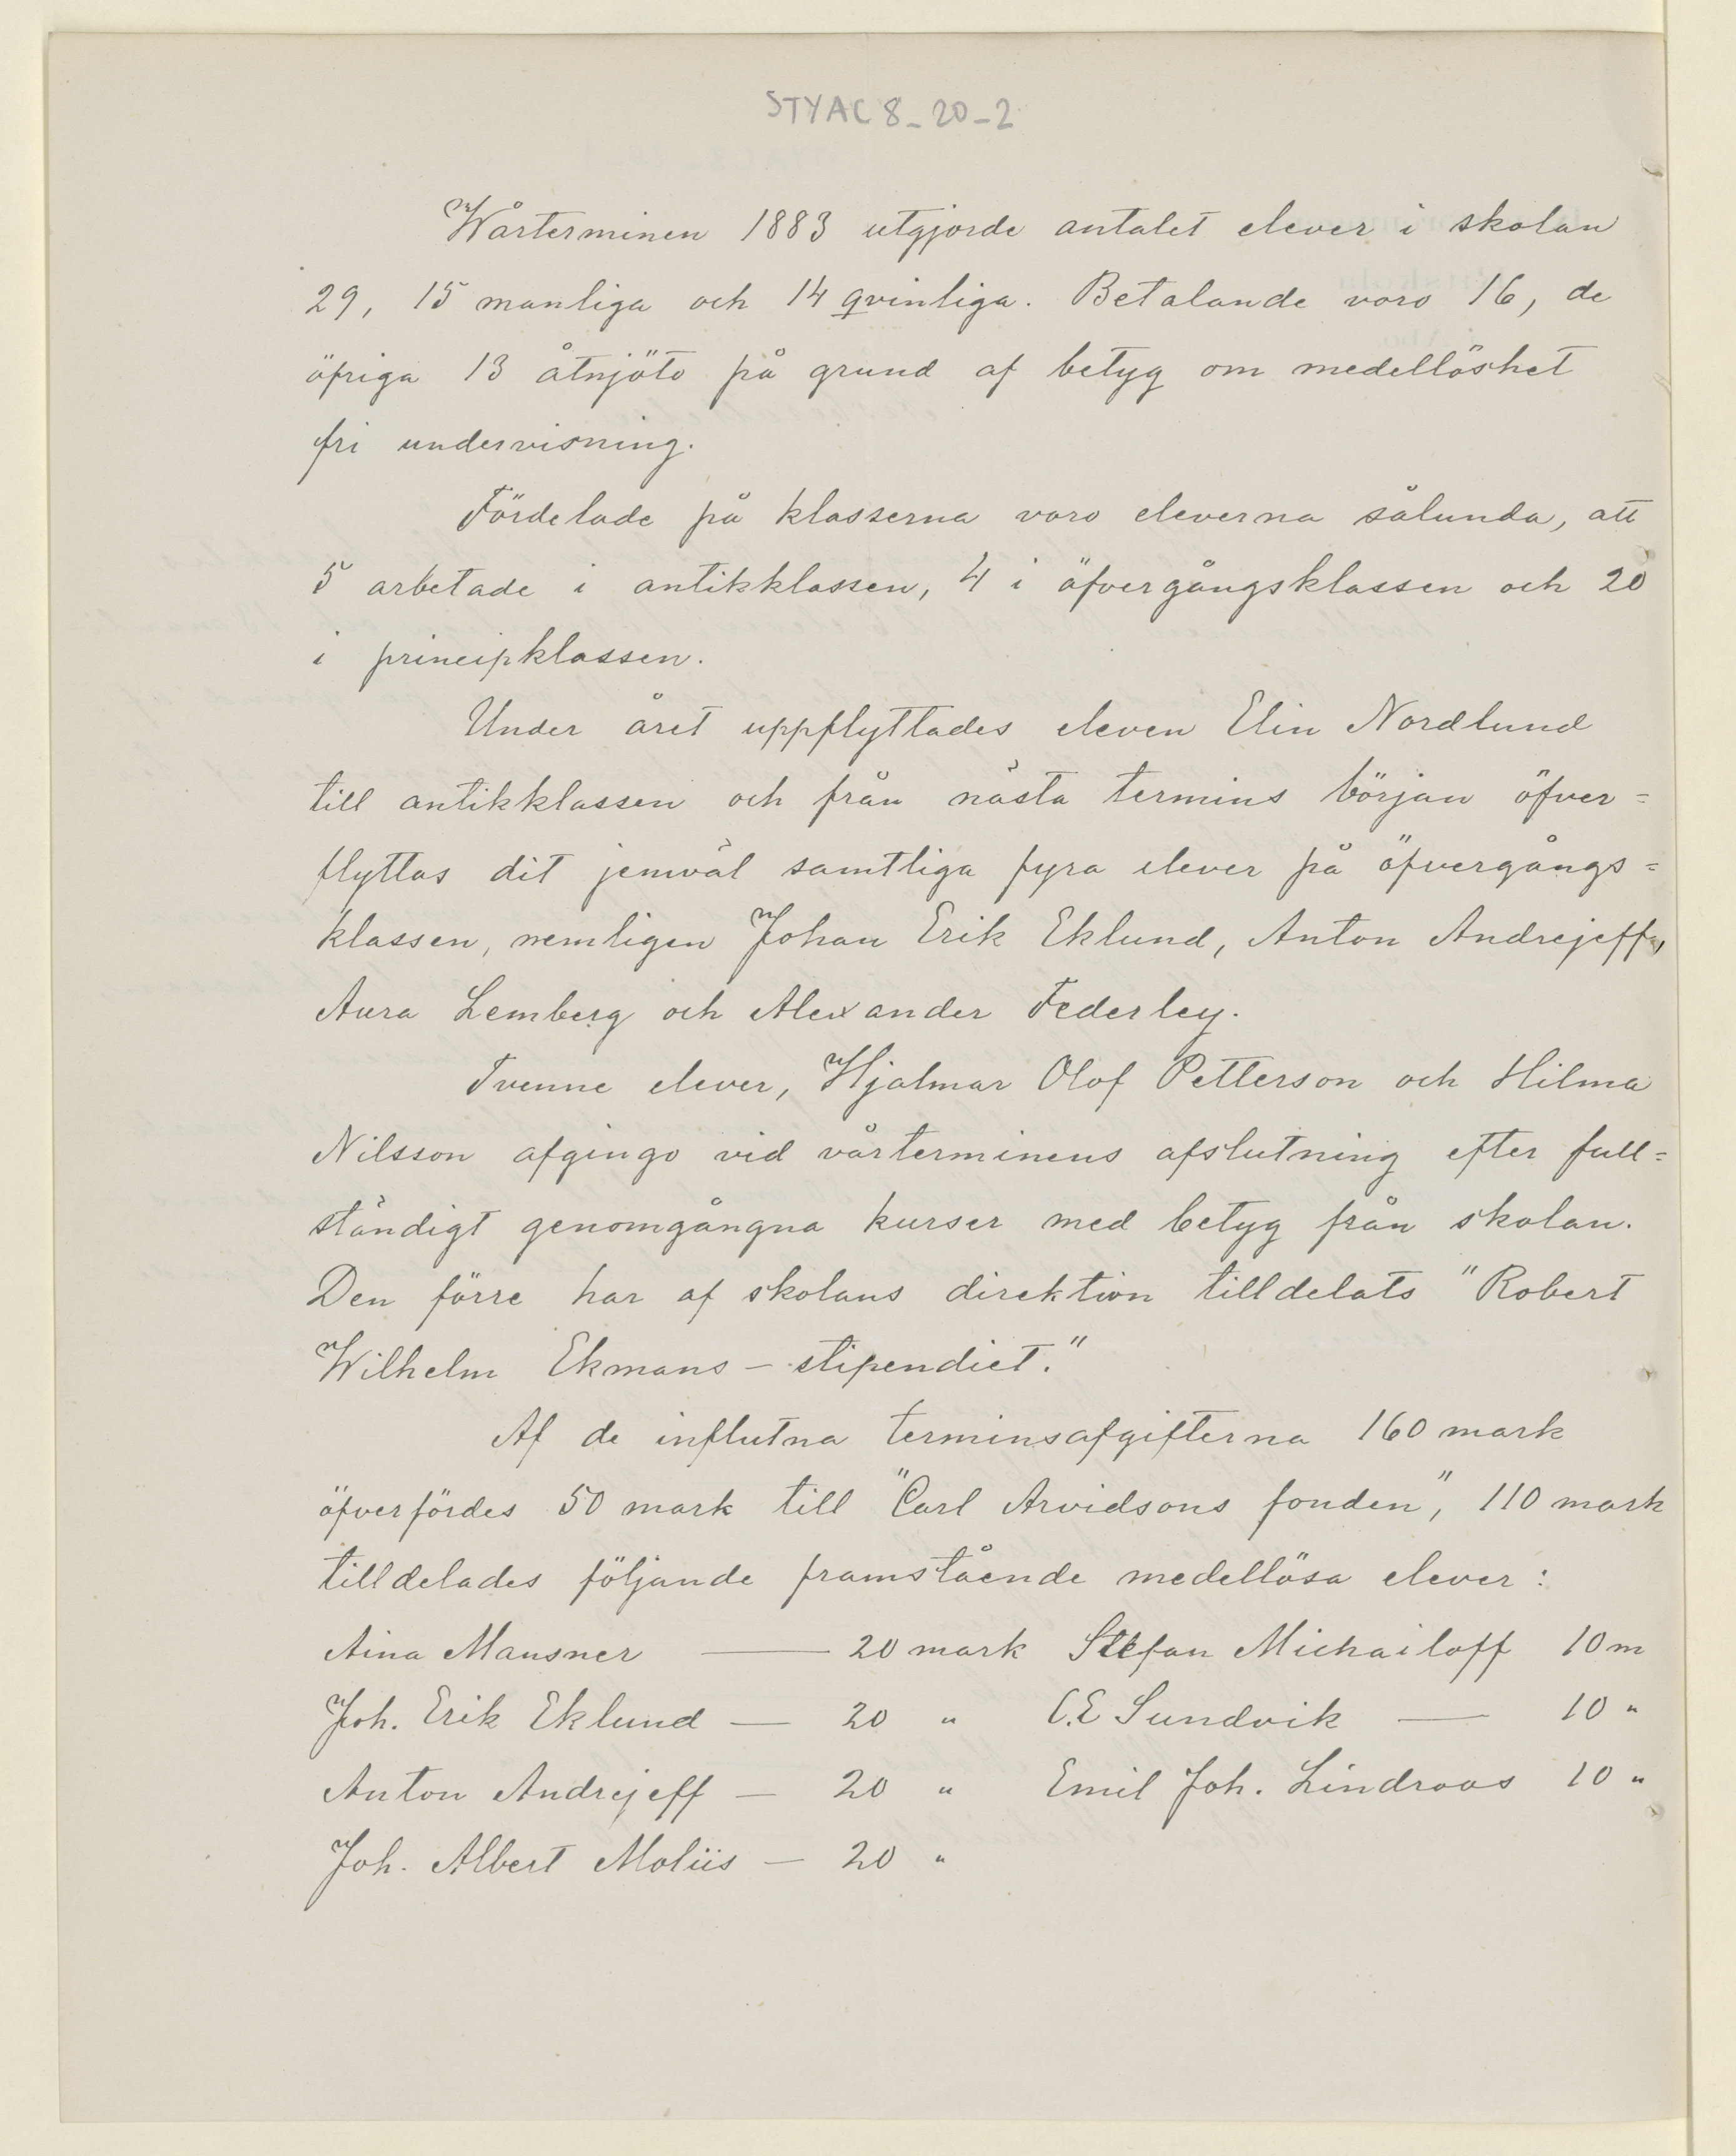 STYAC 8_20_2
Wårterminen 1883 utgjorde antalet elever i skolan
29, 15 manliga och 14 qvinliga. Betalande voro 16, de
öfriga 13 åtnjöto på grund af betyg om medellöshet
fri undervisning.
Fördelade på klasserna voro eleverna sålunda, att
5 arbetade i antikklassen, 4 i öfvergångsklassen och 20
i principklassen.
Under året uppflyttades eleven Elin Nordlund
till antikklassen och från nästa termins början öfver=
flyttas dit jemväl samtliga fyra elever på öfvergångs=
klassen, nemligen Johan Erik Eklund, Anton Andrejeff,
Aura Lemberg och Alexander Federley.
Tvenne elever, Hjalmar Olof Petterson och Hilma
Nilsson afgingo vid vårterminens afslutning efter full=
ständigt genomgångna kurser med betyg från skolan.
Den förre har af skolans direktion tilldelats "Robert
Wilhelm Ekmans – stipendiet."
Af de influtna terminsafgifterna 160 mark
öfverfördes 50 mark till "Carl Arvidsons fonden", 110 mark
tilldelades följande framstående medellösa elever:
Aina Mansner — 20 mark Stefan Michailoff 10 m
Joh. Erik Eklund — 20 " C.E Sundvik — 10 "
Anton Andrejeff — 20 " Emil Joh. Lindroos 10 "
Joh. Albert Moliis — 20 "